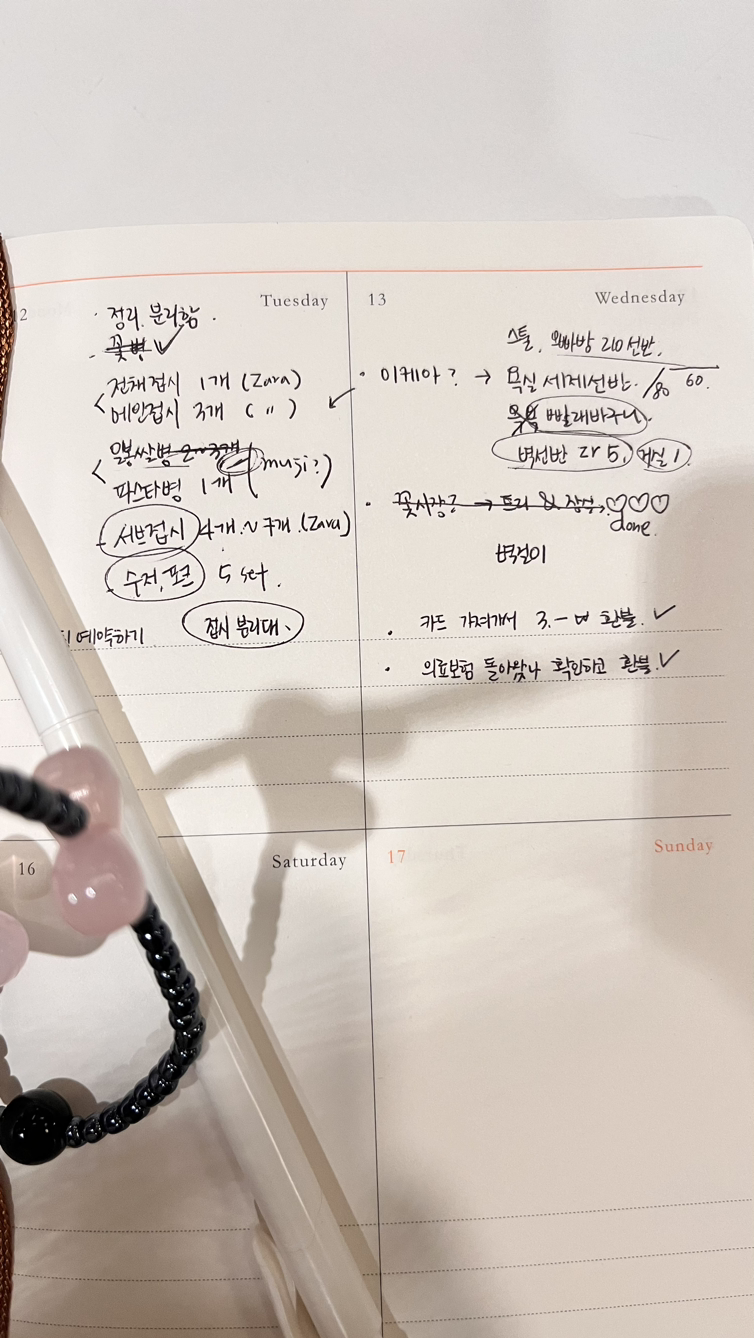 12
Tuesday
· 정리. 분리함.
- 꽃병 ✓
< 전채접시 1개 (Zara)
메인접시 3개 ( 〃 )
파스타병 1개 (muji?)
- 서브접시 4개~7개.(Zara)
- 수저,포크 5 set.
예약하기
접시 분리대.
13
Wednesday
스툴. 오빠방 210 선반.
· 이케아? → 욕실 세제선반. /80 60.
빨래바구니.
벽선반 zr 5, 거실 1
· 꽃시장 → 트리 & 장식, ♡♡♡
done.
벽걸이
· 카드 가져가서 3.-₩ 환불. ✓
· 의료보험 돌아왔나 확인하고 환불. ✓
16
Saturday
17
Sunday